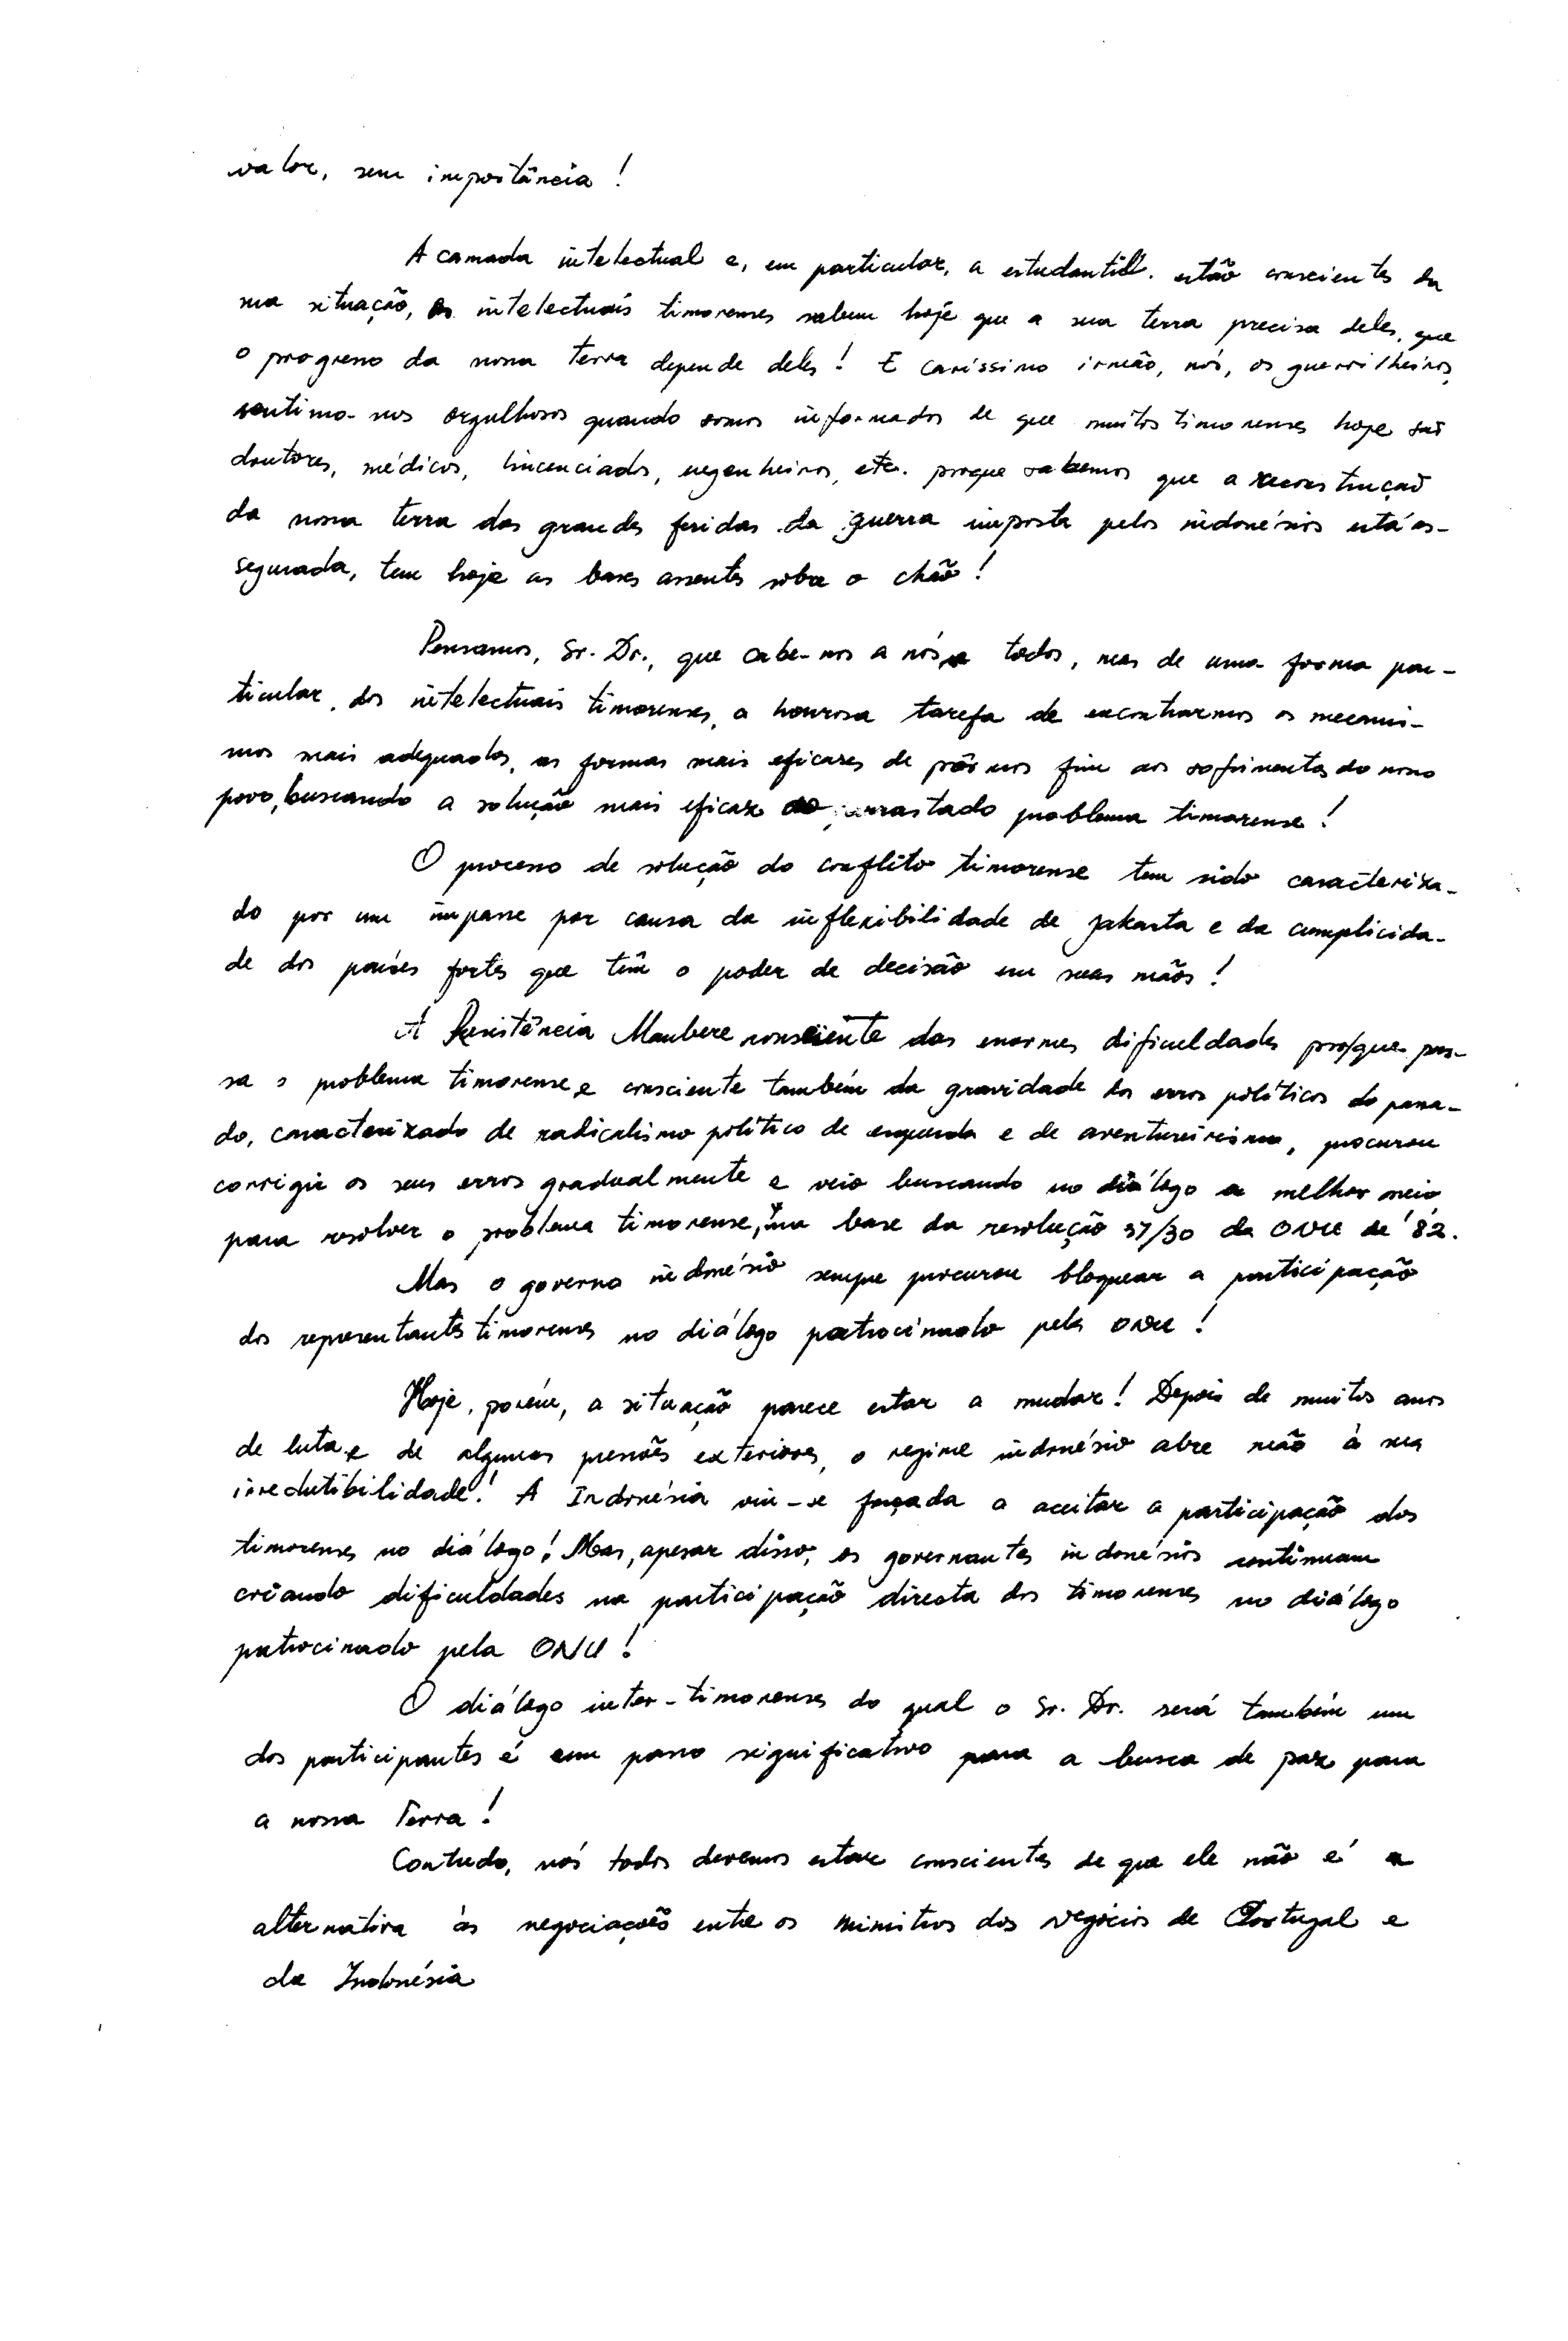 valor, sem importância !
A camada intelectual e, em particular, a estudantil. estão conscientes da
sua situação, os intelectuais timorenses sabem hoje que a sua terra precisa deles, que
o progresso da nossa terra depende deles ! E caríssimo irmão, nós, os guerrilheiros,
sentimo-nos orgulhosos quando somos informados de que muitos timorenses hoje são
doutores, médicos, lincenciados, engenheiros, etc. porque sabemos que a reconstrução
da nossa terra das grandes feridas da guerra imposta pelos indonésios está as-
segurada, tem hoje as bases assentes sobre o chão !
Pensamos, Sr. Dr., que cabe-nos a nós todos, mas de uma forma par-
ticular, dos intelectuais timorenses, a honrosa tarefa de encontrarmos os mecanis-
mos mais adequados, as formas mais eficazes de pôrmos fim aos sofrimentos do nosso
povo, buscando a solução mais eficaz do arrastado problema timorense !
O processo de solução do conflito timorense tem sido caracteriza-
do por um impasse por causa da inflexibilidade de Jakarta e da cumplicida-
de dos países fortes que têm o poder de decisão em suas mãos !
A Resistência Maubere consciente das enormes dificuldades porque pas-
sa o problema timorense e consciente também da gravidade dos erros políticos do passa-
do, caracterizado de radicalismo político de esquerda e de aventureirismo, procurou
corrigir os seus erros gradualmente e veio buscando no diálogo o melhor meio
para resolver o problema timorense, na base da resolução 37/30 da ONU de '82.
Mas o governo indonésio sempre procurou bloquear a participação
dos representantes timorenses no diálogo patrocinado pela ONU !
Hoje, porém, a situação parece estar a mudar ! Depois de muitos anos
de luta e de algumas pressões exteriores, o regime indonésio abre mão à sua
irredutibilidade ! A Indonésia viu-se forçada a aceitar a participação dos
timorenses no diálogo ! Mas, apesar disso, os governantes indonésios continuam
criando dificuldades na participação directa dos timorenses no diálogo
patrocinado pela ONU !
O diálogo inter-timorenses do qual o Sr. Dr. será também um
dos participantes é um passo significativo para a busca de paz para
a nossa Terra !
Contudo, nós todos devemos estar conscientes de que ele não é a
alternativa às negociações entre os ministros dos negócios de Portugal e
da Indonésia